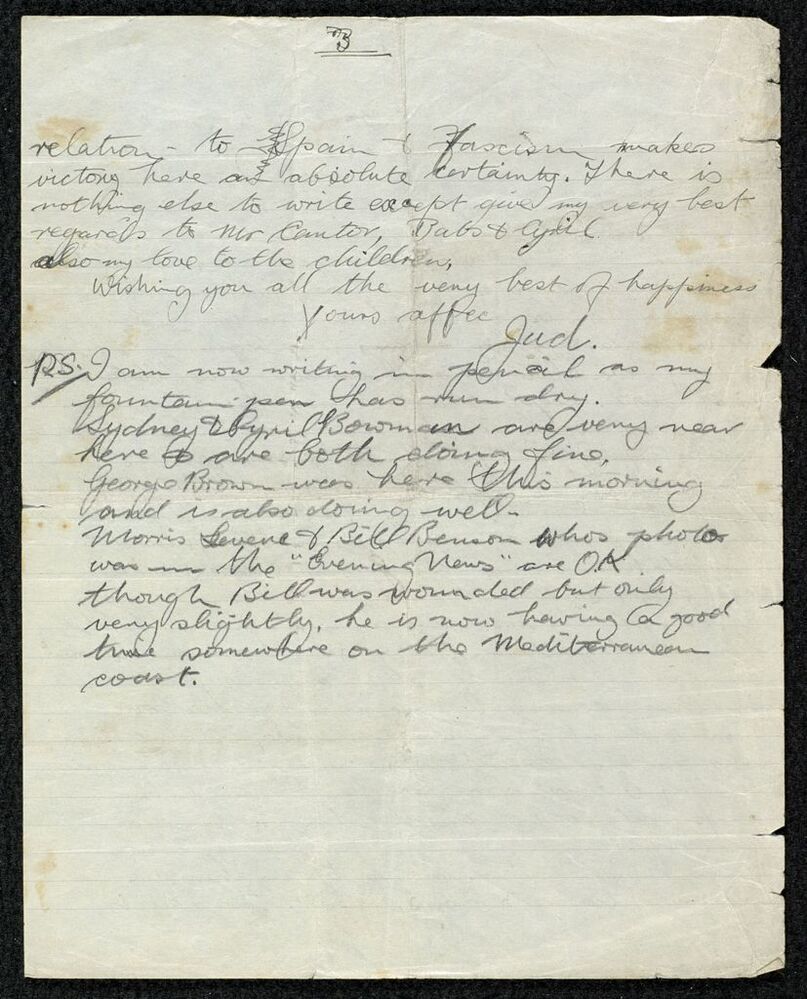 3
relation - to Spain & Fascism makes
victory here an absolute certainty. There is
nothing else to write except give my very best
regards to Mr Cantor, Babs & Cyril
also my love to the children,
Wishing you all the very best of happiness
Yours affec
Jud.
P.S. I am now writing in pencil as my
fountain pen has run dry.
Sydney & Cyril Bowman are very near
here & are both doing fine,
George Brown was here this morning
and is also doing well -
Morris Levene & Bill Benson whos photo
was in the "Evening News" are OK
though Bill was wounded but only
very slightly, he is now having a good
time somewhere on the Mediterranean
coast.